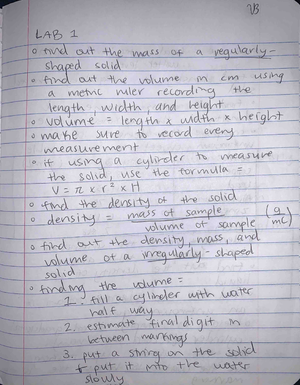 LAB 1
o find out the mass of a regularly-
shaped solid
o find out the volume in cm using
a metric ruler recording the
length, width, and height
o volume = length x width x height
o make sure to record every
measurement
o if using a cylinder to measure
the solid, use the formula =
V = π x r² x H
o find the density of the solid
o density = mass of sample
volume of sample (g/mL)
o find out the density, mass, and
volume of a irregularly-shaped
solid
o finding the volume =
1. fill a cylinder with water
half way
2. estimate final digit in
between markings
3. put a string on the solid
+ put it into the water
slowly